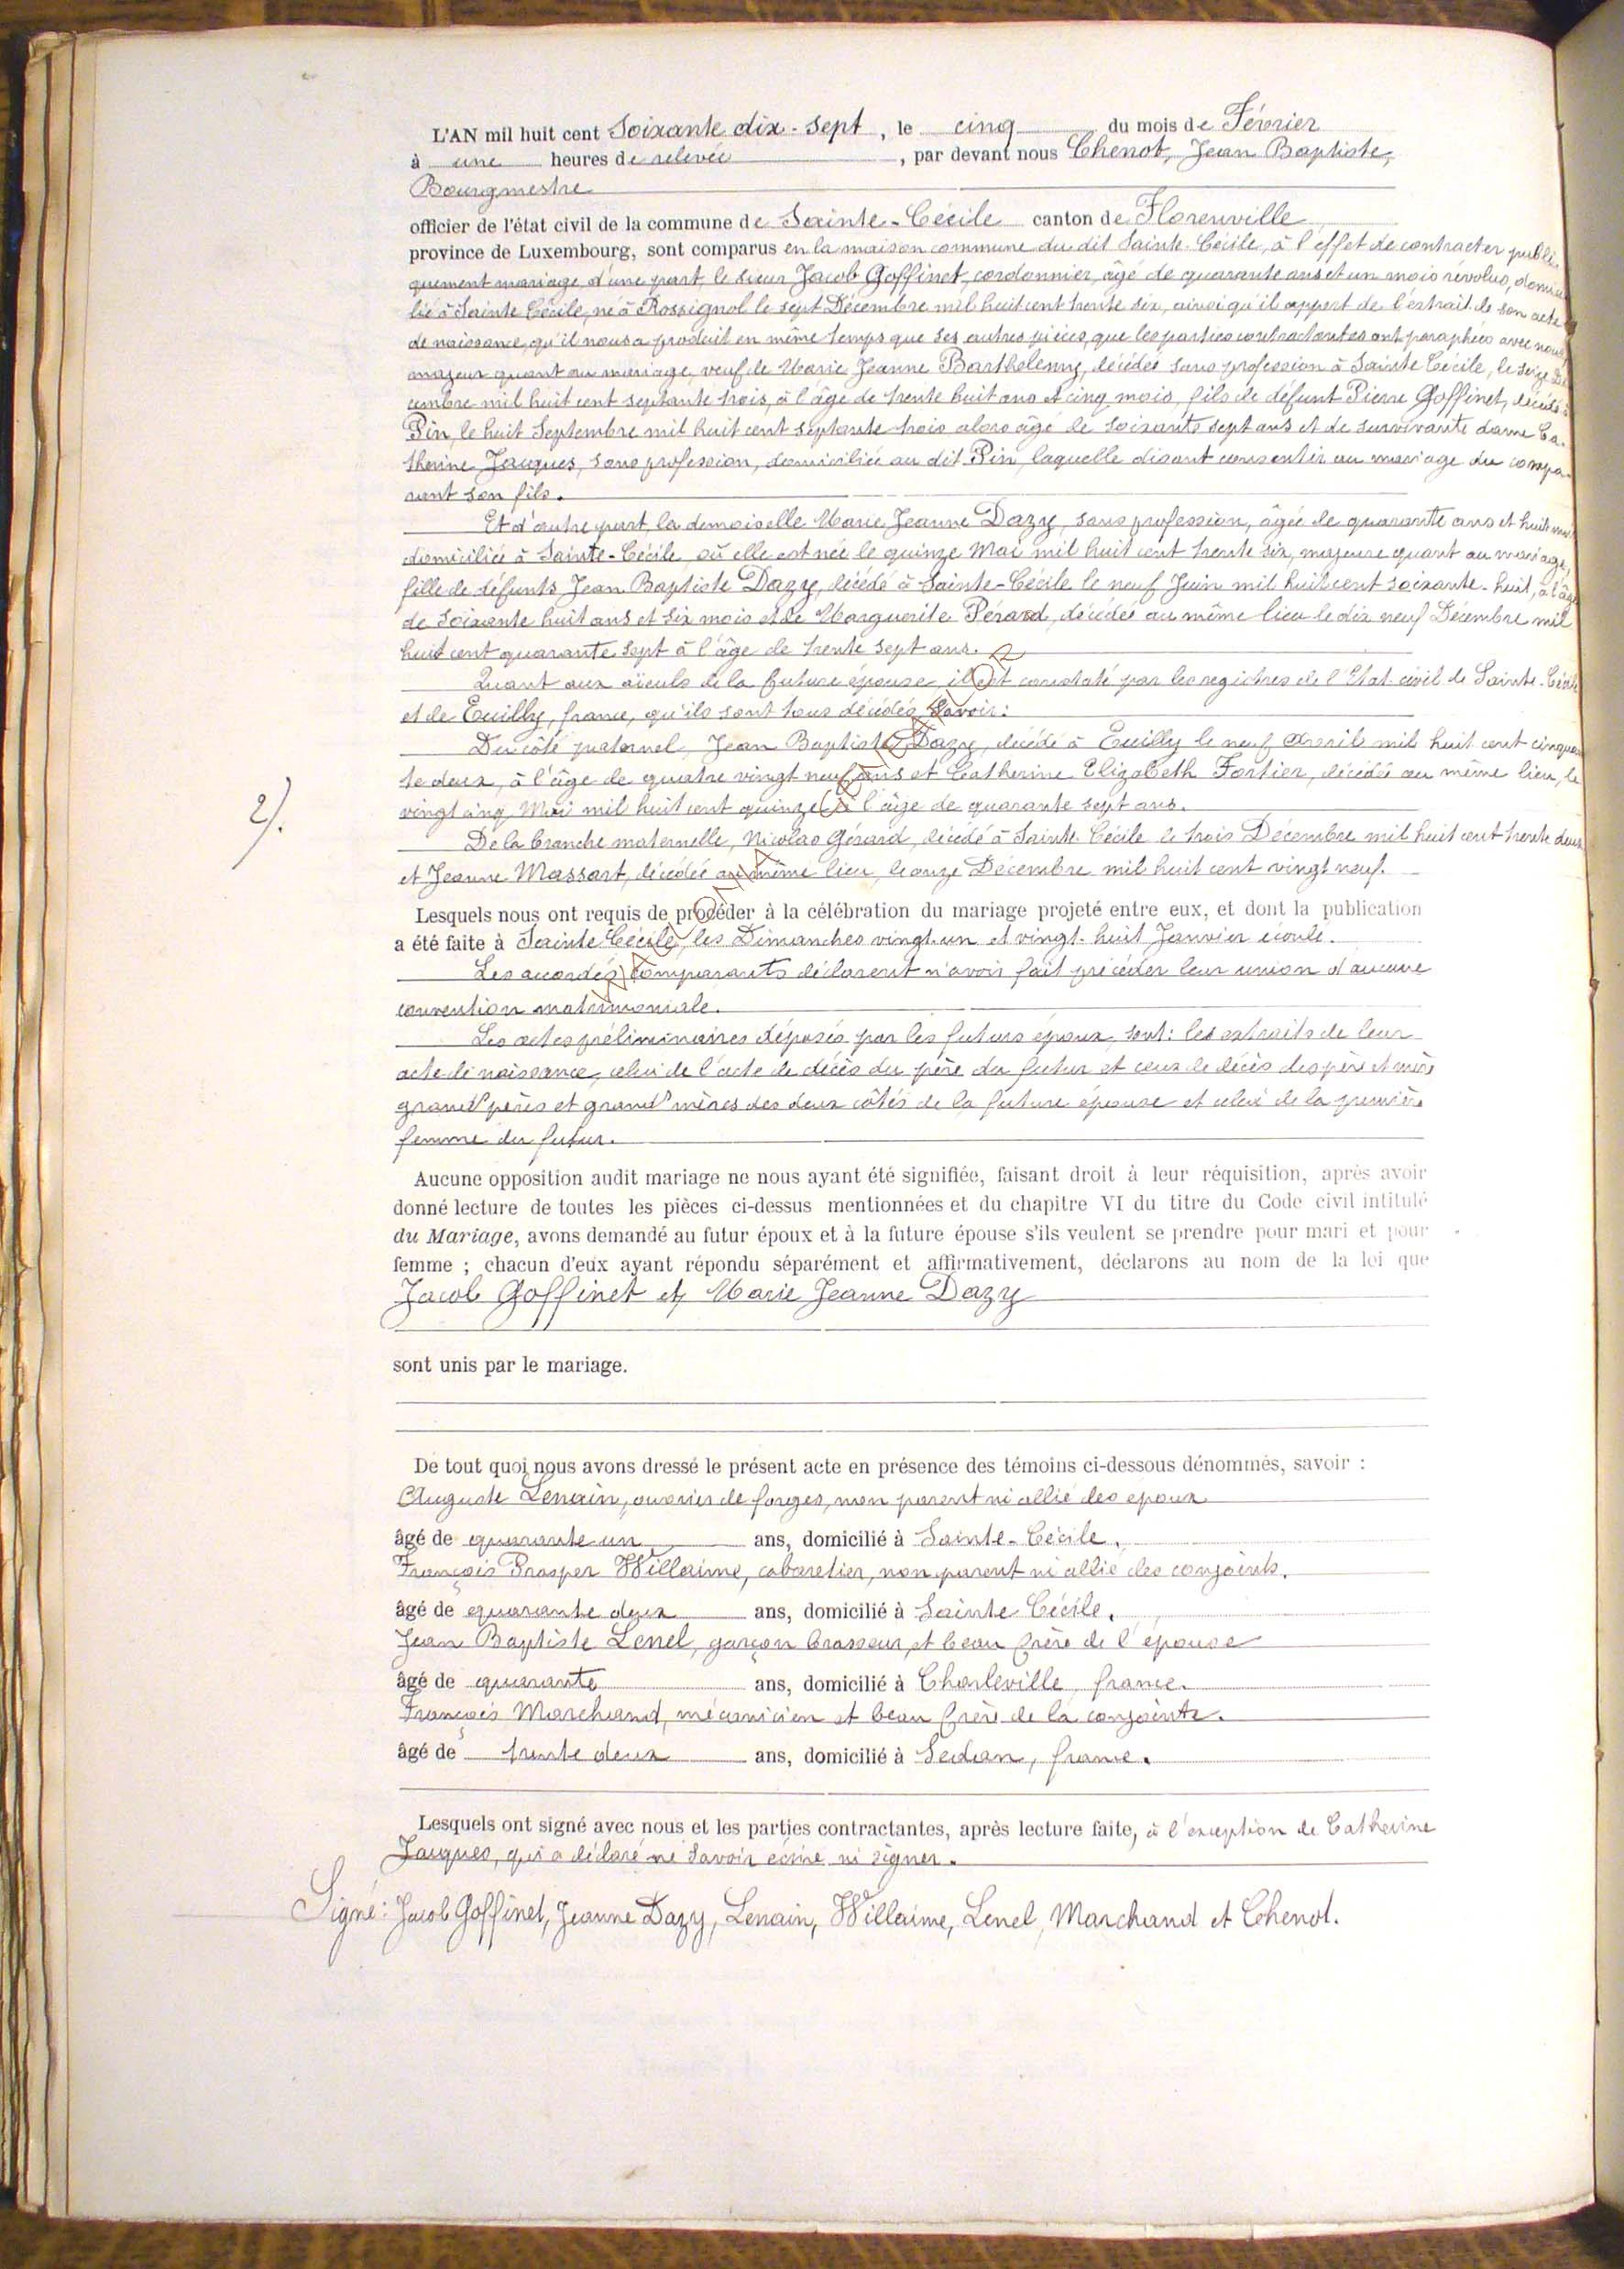 L'AN mil huit cent Soixante dix-sept, le cinq du mois de Février
à une heures de relevée, par devant nous Chenot, Jean Baptiste,
Bourgmestre
officier de l'état civil de la commune de Sainte-Cécile canton de Florenville
province de Luxembourg, sont comparus en la maison commune du dit Sainte-Cécile, à l'effet de contracter publi-
quement mariage d'une part, le sieur Jacob Goffinet, cordonnier, âgé de quarante ans et un mois révolus, domici
lié à Sainte Cécile, né à Rossignol le sept Décembre mil huit cent trente six, ainsi qu'il appert de l'extrait de son acte
de naissance, qu'il nous a produit en même temps que ses autres pièces, que les parties contractantes ont paraphées avec nous,
majeur quant au mariage, veuf de Marie Jeanne Barthelemy, décédée sans profession à Sainte Cécile, le seize Dé
cembre mil huit cent septante trois, à l'âge de trente huit ans et cinq mois, fils de défunt Pierre Goffinet, décédé à
Pin, le huit Septembre mil huit cent septante trois alors âgé de soixante sept ans et de survivante dame Ca-
therine Jacques, sans profession, domiciliée au dit Pin, laquelle disant consentir au mariage du compa-
rant son fils.
Et d'autre part, la demoiselle Marie Jeanne Dazy, sans profession, âgée de quarante ans et huit mois
domiciliée à Sainte-Cécile, où elle est née le quinze Mai mil huit cent trente six, majeure quant au mariage,
fille de défunts Jean Baptiste Dazy, décédé à Sainte-Cécile le neuf Juin mil huit cent soixante-huit, à l'âge
de soixante huit ans et six mois et de Marguerite Pérard, décédée au même lieu le dix neuf Décembre mil
huit cent quarante sept à l'âge de trente sept ans.
Quant aux aïeuls de la future épouse, il est constaté par les registres de l'Etat-civil de Sainte-Cécile
et de Euilly, france, qu'ils sont tous décédés, Savoir:
Du côté paternel, Jean Baptiste Dazy, décédé à Euilly le neuf Avril mil huit cent cinquan
te deux, à l'âge de quatre vingt neuf ans et Catherine Elizabeth Fortier, décédée au même lieu, le
vingt cinq Mai mil huit cent quinze à l'âge de quarante sept ans.
2).
De la branche maternelle, Nicolas Gérard, décédé à Sainte-Cécile le trois Décembre mil huit cent trente deux
et Jeanne Massart, décédée au même lieu, le onze Décembre mil huit cent vingt neuf.
Lesquels nous ont requis de procéder à la célébration du mariage projeté entre eux, et dont la publication
a été faite à Sainte Cécile, les Dimanches vingt-un et vingt-huit Janvier écoulé.
Les accordés comparants déclarent n'avoir fait précéder leur union d'aucune
convention matrimoniale.
Les actes préliminaires déposés par les futurs époux, sont: les extraits de leur
acte de naissance, celui de l'acte de décès du père du futur et ceux de décès des père et mère
grands pères et grand'mères des deux côtés de la future épouse et celui de la première
femme du futur.
Aucune opposition audit mariage ne nous ayant été signifiée, faisant droit à leur réquisition, après avoir
donné lecture de toutes les pièces ci-dessus mentionnées et du chapitre VI du titre du Code civil intitulé
du Mariage, avons demandé au futur époux et à la future épouse s'ils veulent se prendre pour mari et pour
femme ; chacun d'eux ayant répondu séparément et affirmativement, déclarons au nom de la loi que
Jacob Goffinet et Marie Jeanne Dazy
sont unis par le mariage.
De tout quoi nous avons dressé le présent acte en présence des témoins ci-dessous dénommés, savoir :
Auguste Lenain, ouvrier de forges, non parent ni allié des epoux
âgé de quarante un ans, domicilié à Sainte-Cécile.
François Prosper Willaime, cabaretier, non parent ni allié des conjoints.
âgé de quarante deux ans, domicilié à Sainte Cécile.
Jean Baptiste Lenel, garçon brasseur, et beau frère de l'épouse
âgé de quarante ans, domicilié à Charleville, france.
François Marchand, mécanicien et beau frère de la conjointe.
âgé de trente deux ans, domicilié à Sedan, france.
Lesquels ont signé avec nous et les parties contractantes, après lecture faite, à l'exception de Catherine
Jacques, qui a déclaré ne savoir écrire ni signer.
Signé: Jacob Goffinet, Jeanne Dazy, Lenain, Willaime, Lenel, Marchand et Chenot.